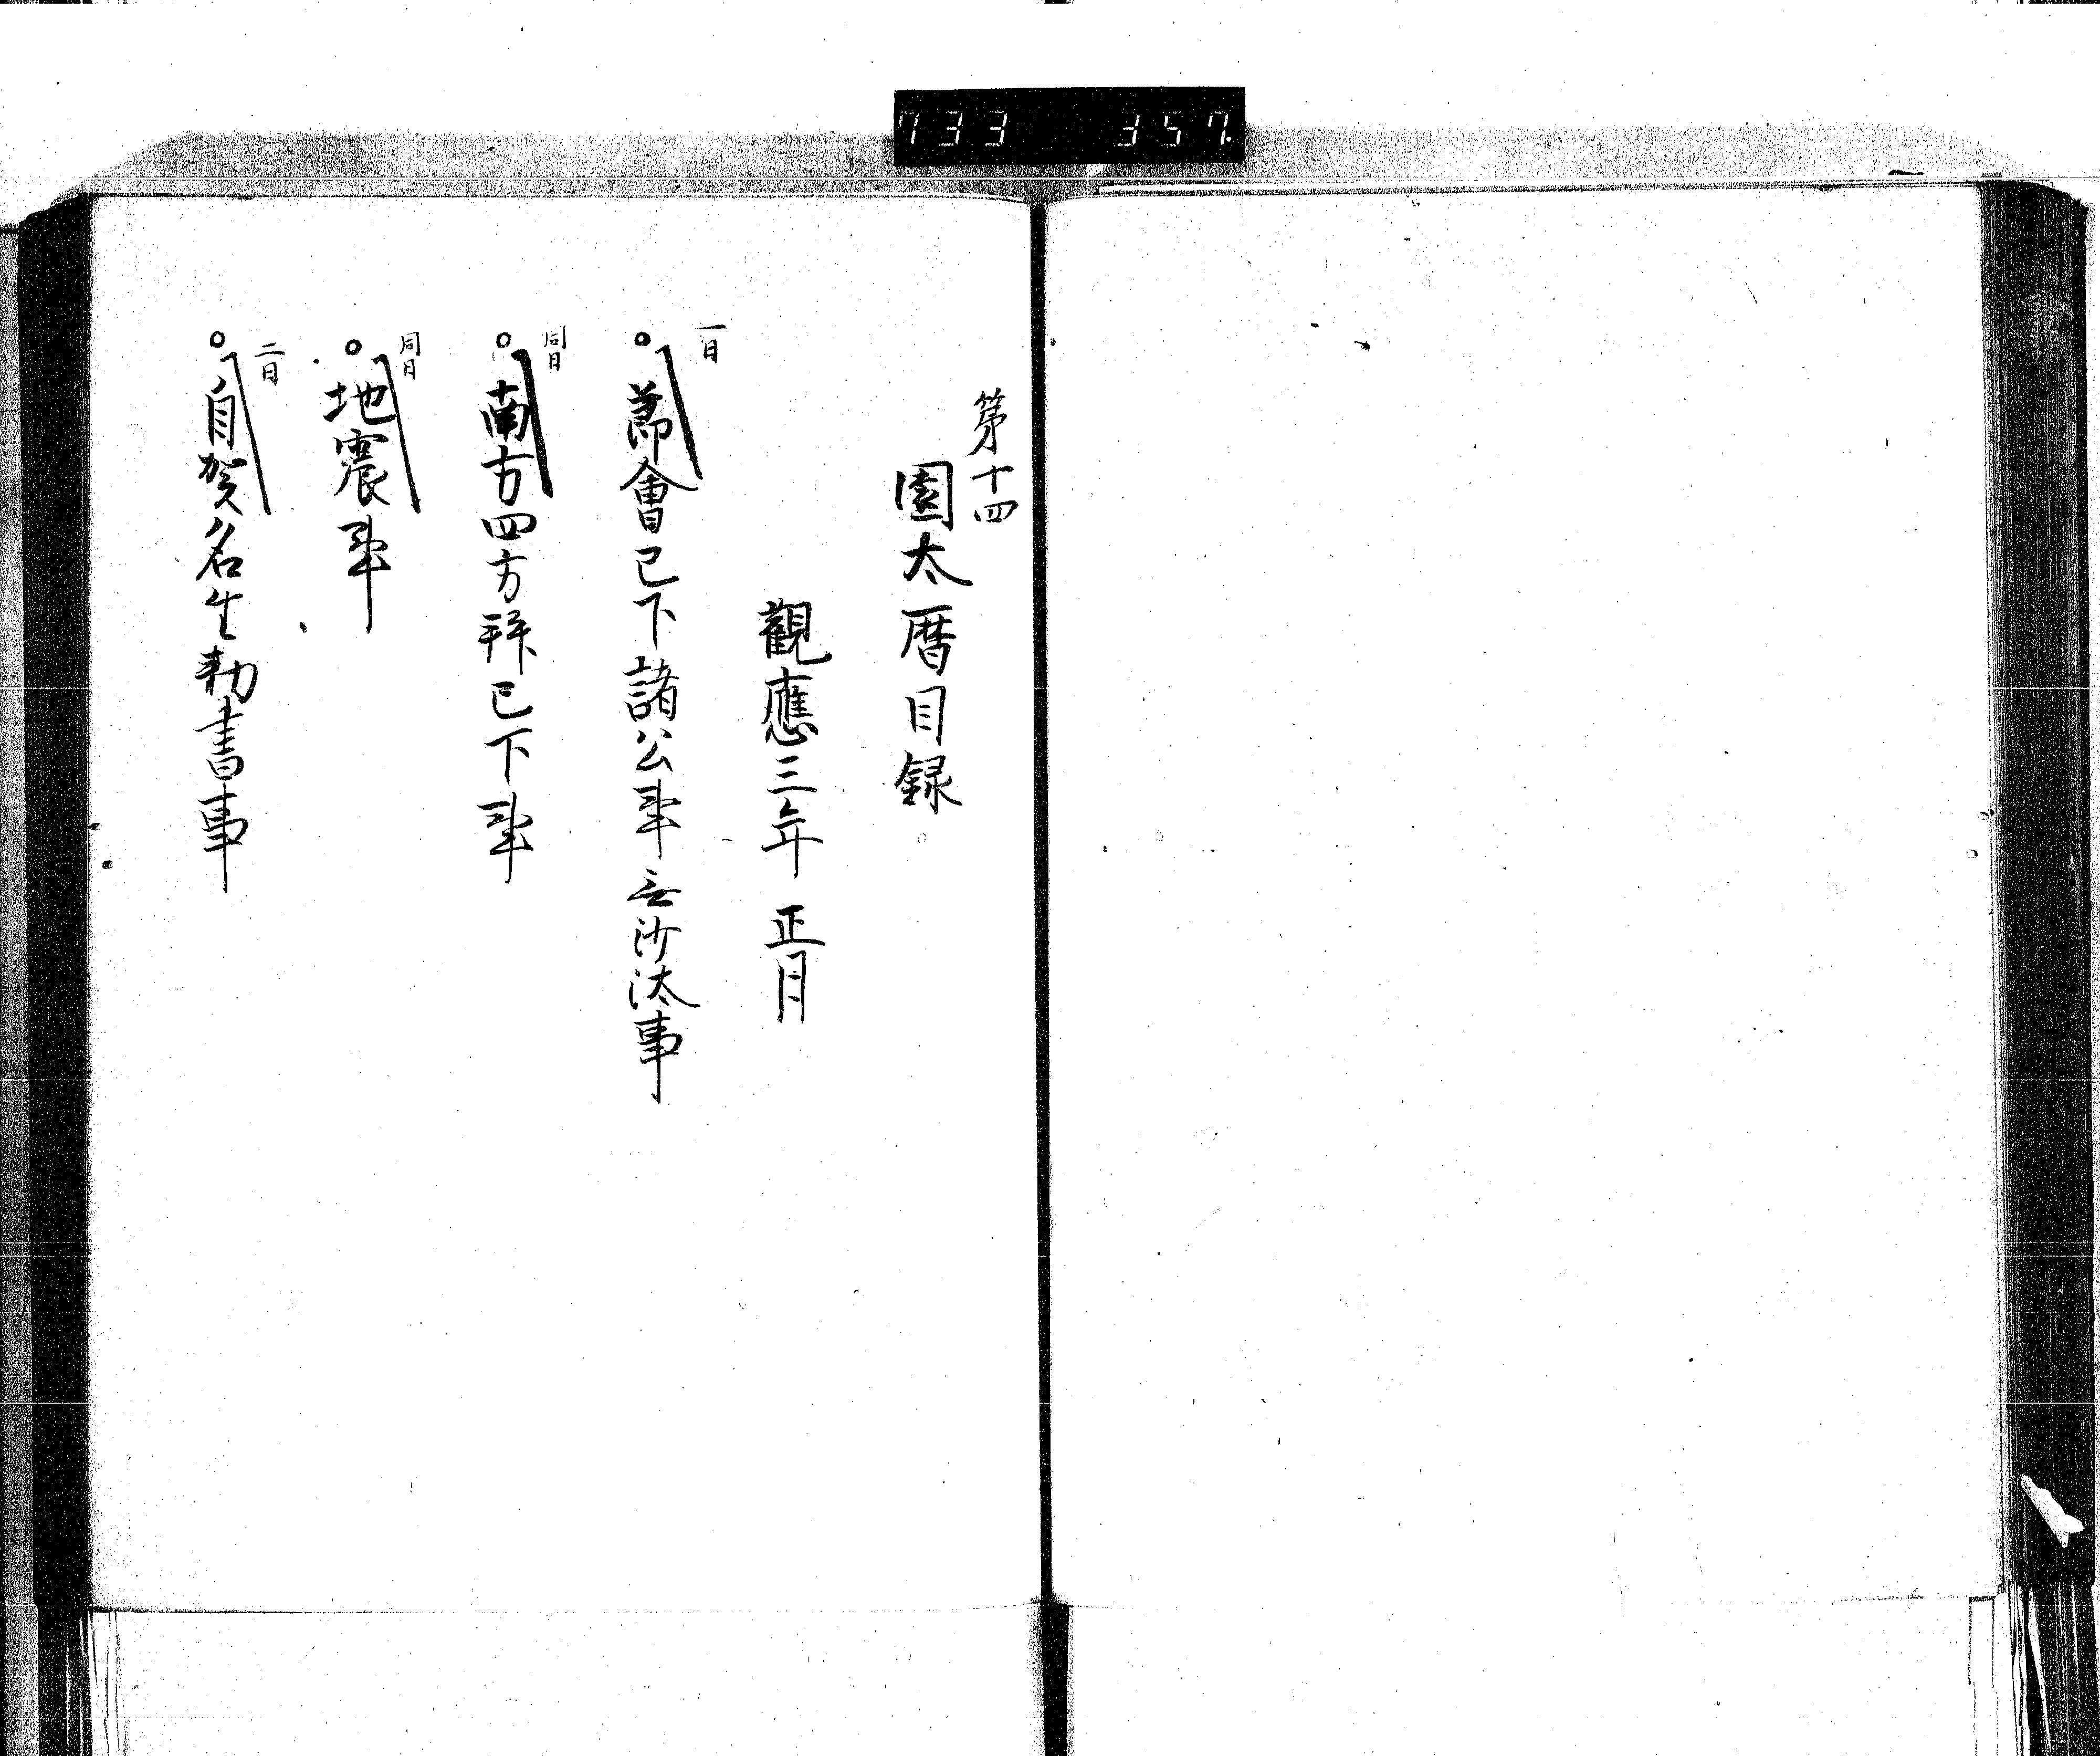 733 357
第十四
園太暦目録
觀應三年 正月
一日
○節會已下諸公事無沙汰事
同日
○南方四方拜已下事
同日
○地震事
二日
○自賀名生勅書事